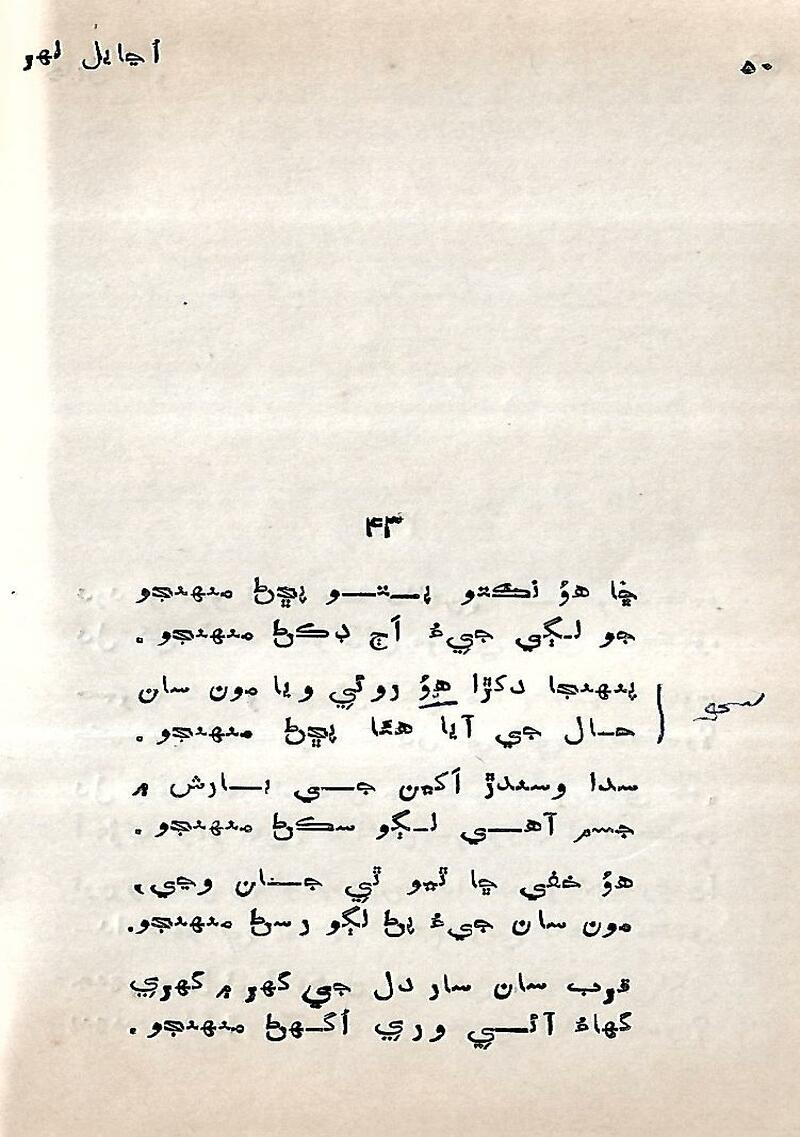 ۵۰
اڃايل لهر
۴۳
ڇا هوُ نڪتو پـتـــو پڇڻ منهنجو
جو لـڳي جيءُ اَڄ ڊڪڻ منهنجو .
پنهنجا دکڙا هوُ روئي ويا مون سان
حـال جي آيا هئا پڇڻ منهنجو .
سدا وسندڙ اَکين جـي بـارش ۾
جسم آهـي لـڳو سڪڻ منهنجو .
هوُ خفي ڇا ٿيو ٿي جـنان وڃي،
مون سان جيءُ پڻ لڳو رسڻ منهنجو.
قرب سان سار دل جي گهر ۾ گهري
گهاءُ آئـي وري اُگـهڻ منهنجو .